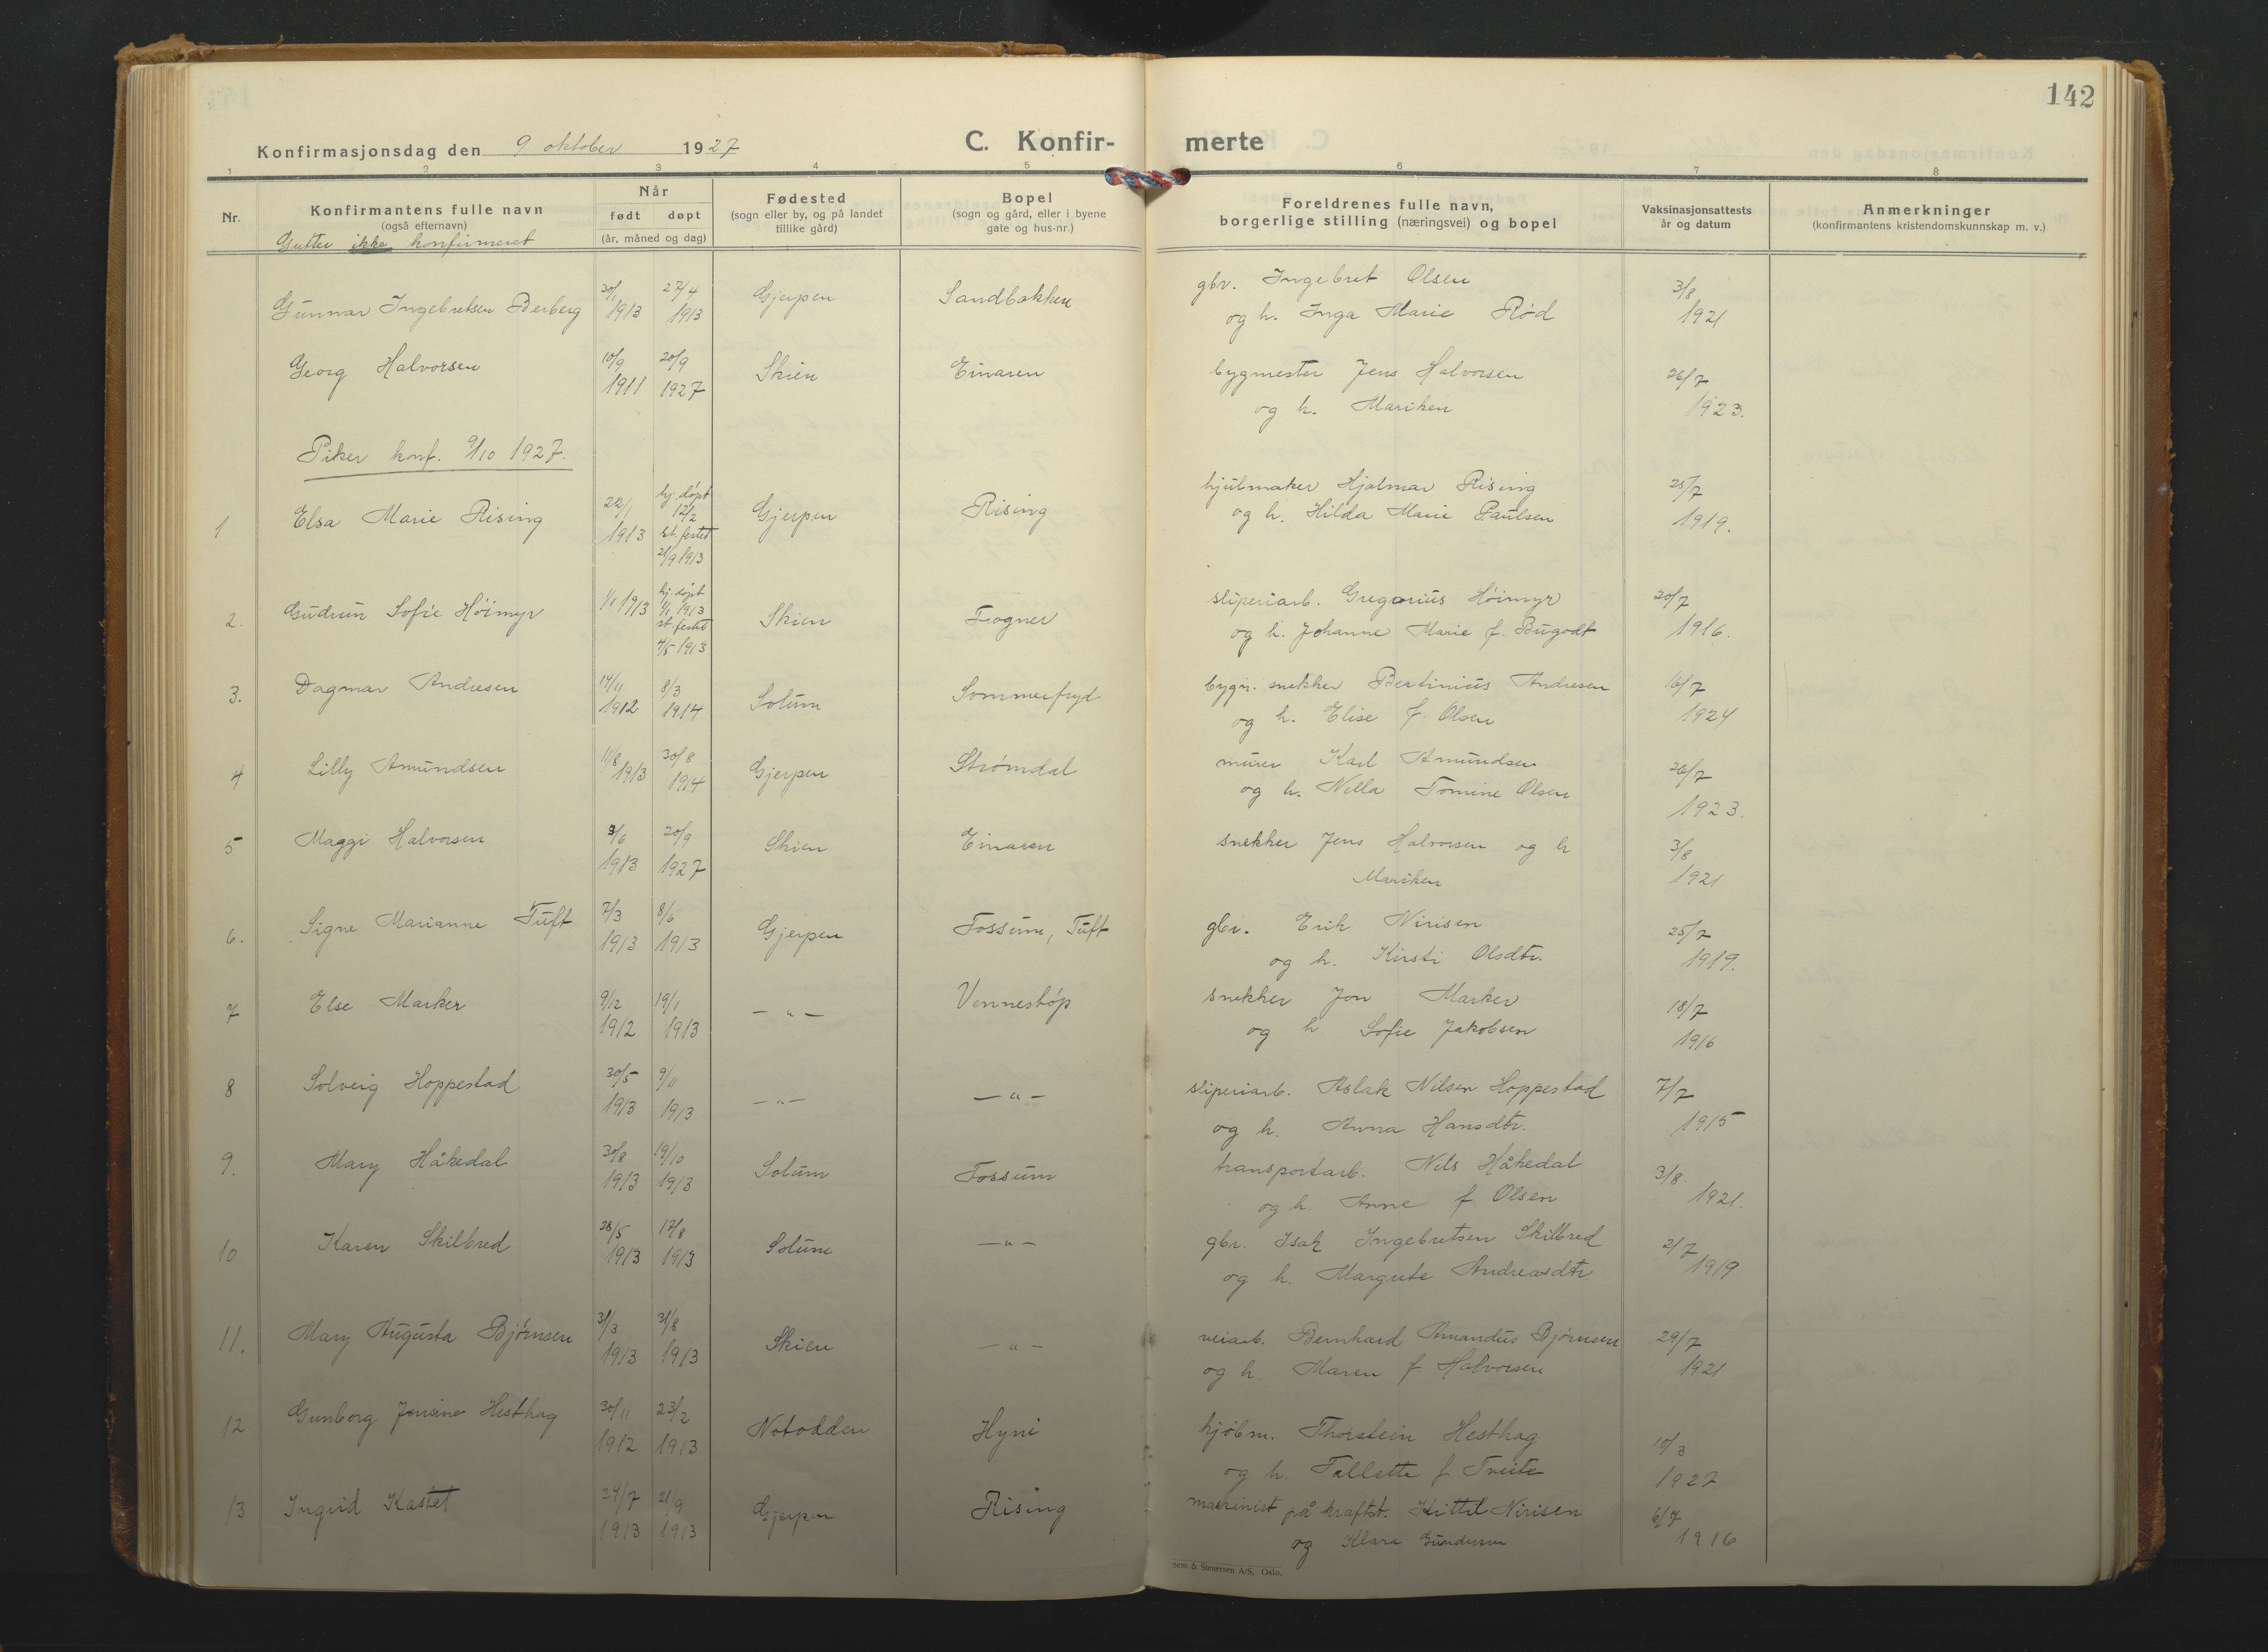 142
Konfirmasjonsdag den 9 oktober 1927
C. Konfir-merte
1 2 3 4 5 6 7 8
Nr.
Konfirmantens fulle navn
(også efternavn)
Gutter ikke konfirmeret
Når
født døpt
(år, måned og dag)
Fødested
(sogn eller by, og på landet
tillike gård)
Bopel
(sogn og gård, eller i byene
gate og hus-nr.)
Foreldrenes fulle navn,
borgerlige stilling (næringsvei) og bopel
Vaksinasjonsattests
år og datum
Anmerkninger
(konfirmantens kristendomskunnskap m. v.)
Gunnar Ingebretsen Berberg 30/1 1913 27/4 1913 Gjerpen Sandbakken gbr. Ingebret Olsen 3/8 1921
og h. Inga Marie Rød
Georg Halvorsen 10/9 1911 20/9 1927 Skien Einaren bygmester Jens Halvorsen 26/7 1923.
og h. Mariken
Piker konf. 9/10 1927.
1 Elsa Marie Rising 22/1 1913 hj. døpt 12/2 st. festet 21/9 1913 Gjerpen Rising hjulmaker Hjalmar Rising 25/7 1919.
og h. Hilda Marie Paulsen
2. Gudrun Sofie Høimyr 1/1 1913 hj. døpt 1/1 1913 st. festet 4/5 1913 Skien Fogner sliperiarb. Gregorius Høimyr 20/7 1916.
og h. Johanne Marie f. Bugodt
3. Dagmar Andresen 14/11 1912 8/3 1914 Solum Sommerfryd bygn. snekker Bertinius Andresen 16/7 1924
og h. Elise f. Olsen
4 Lilly Amundsen 11/8 1913 30/8 1914 Gjerpen Strømdal murer Karl Amundsen 26/7 1923.
og h. Nilla Tomine Olsen
5 Maggi Halvorsen 3/6 1913 20/9 1927 Skien Einaren snekker Jens Halvorsen og h 3/8 1921
Mariken
6. Signe Marianne Tuft 7/3 1913 8/6 1913 Gjerpen Fossum, Tuft gbr. Erik Nirisen 25/7 1919.
og h. Kirsti Olsdtr.
7 Else Marker 9/12 1912 19/1 1913 — " — Vennestøp snekker Jon Marker 18/7 1916
og h. Sofie Jakobsen
8 Solveig Hoppestad 30/5 1913 9/11 1913 — " — — " — sliperiarb. Aslak Nilsen Hoppestad 7/7 1915
og h. Anna Hansdtr.
9. Mary Håkedal 30/8 1913 19/10 1913 Solum Fossum transportarb. Nils Håkedal 3/8. 1921.
og h. Anne f. Olsen
10 Karen Skilbred 28/5 1913 17/8 1913 Solum — " — gbr. Isak Ingebretsen Skilbred 2/7 1919
og h. Margrete Andreasdtr.
11. Mary Augusta Bjørnsen 31/3 1913 31/8 1913 Skien — " — veiarb. Bernhard Amandus Bjørnsen 29/7 1921
og h. Maren f. Halvorsen
12 Gunborg Jensine Hesthag 30/11 1912 23/2 1913 Notodden Hyni kjøbm. Thorstein Hesthag 10/3 1927
og h. Tallette f. Tveite
13 Ingrid Kastet 24/7 1913 21/9 1913 Gjerpen Rising maskinist på kraftst. Kittil Nirisen 6/7 1916
og Klara Gundersen
sem & Stenersen A/S, Oslo.